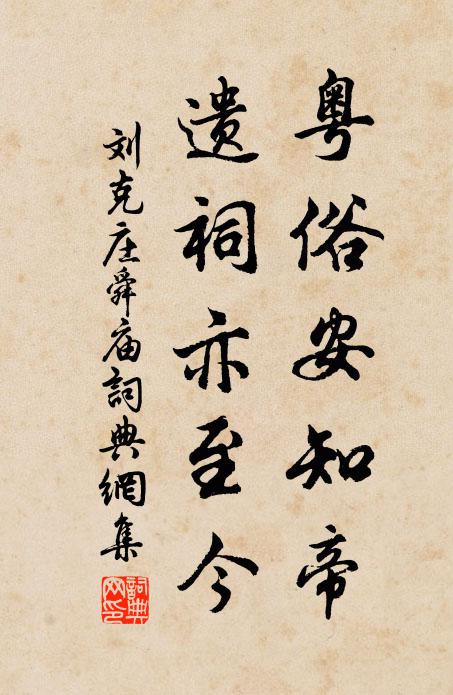 粤俗安知帝
遗祠亦至今
刘克庄舜庙詞典網集
詞典网印